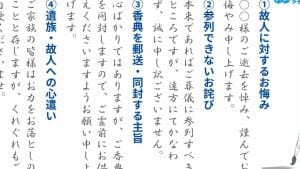 ①故人に対するお悔み
〇〇〇様のご逝去を悼み、謹んでお
悔やみ申し上げます。
②参列できないお詫び
本来であればご葬儀に参列すべき
ところですが、遠方にてかなわ
ず、誠に申し訳ございません。
③香典を郵送・同封する主旨
心ばかりではありますが、ご香典
を同封しますので、ご霊前にお供
えくださいますようお願い申し上
④遺族・故人への心遣い
ご家族の皆様はお力をお落としの
ことと存じますが、くれぐれもご